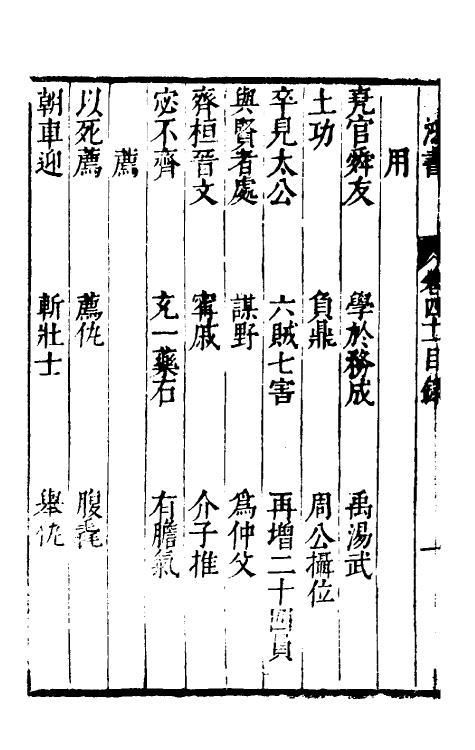 卷四十一目録 一
用
堯官舜友 學於務成 禹湯武
土功 負鼎 周公攝位
卒見太公 六賊七害 再增二十四員
與賢者處 謀野 為仲父
齊桓晉文 甯戚 介子推
宓不齊 充一藥石 有膽氣
薦
以死薦 薦仇 腹毳
朝車迎 斬壯士 舉仇